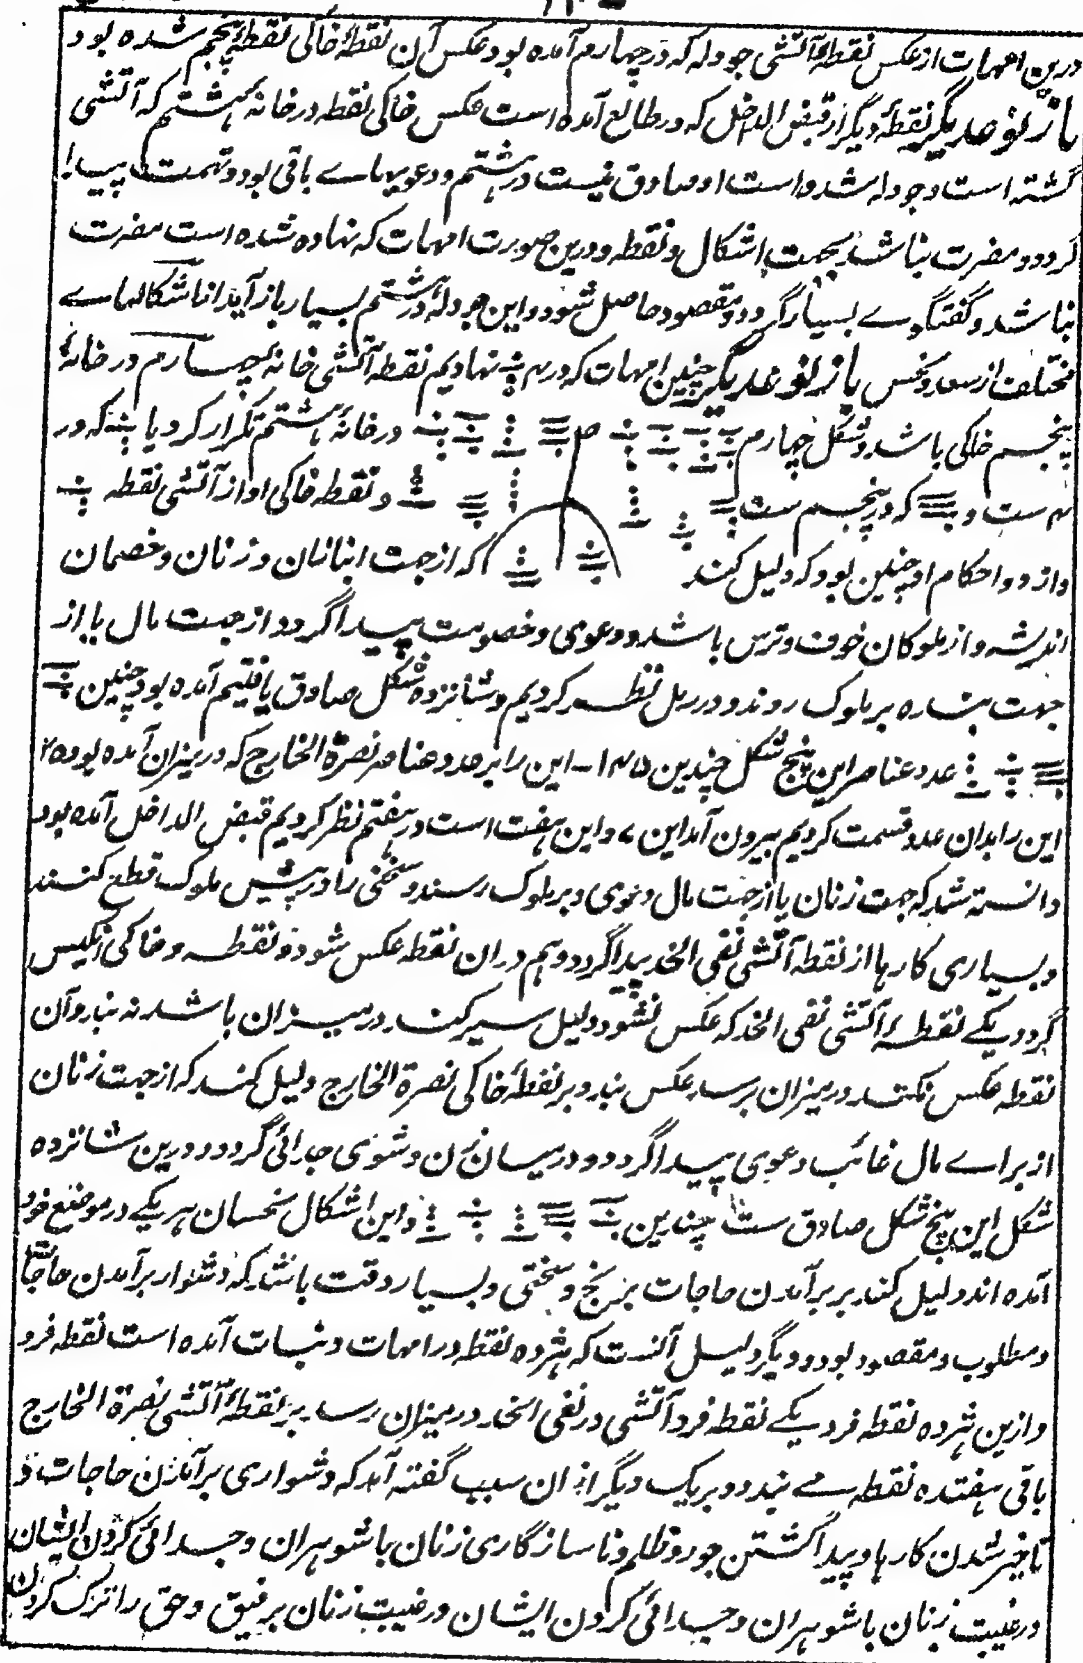 درین امهات از عکس نقطهٔ آتشی جودله که در چهارم آمده بود عکس آن نقطهٔ خاکی نقطهٔ پنجم شده بود
باز نوعدیگر نقطهٔ دیگر از قبض الداخل که در طالع آمده است عکس خاکی نقطه در خانهٔ هشتم که آتشی
گشته است و جودله شده است او صادق نیست در هشتم و دعویهاے باقی بود و تهمت پیدا
گردد و مضرت نباشد بجهت اشکال و نقطه و درین صورت امهات که نهاده شده است مضرت
نباشد و گفتگوے بسیار گردد و مقصود حاصل شود و این جودله در هشتم بسیار باز آید اما شکالهاے
مختلف از سعد و نحس باز نوعدیگر چنین امهات که در نهادیم نقطهٔ آتشی خانهٔ چهارم در خانهٔ
پنجم خاکی باشد و شکل چهارم در خانهٔ هشتم تکرار کرد یا که در
ست و که در پنجم ست و نقطه خاکی او از آتشی نقطه
دارد و احکام او چنین بود که دلیل کند که از جهت انبانان و زنان و خصمان
اندیشه و از ملوکان خوف و ترس باشد و دعوی و خصومت پیدا گردد از جهت مال یا از
جهت بر ملوک روند و در رمل نظر کردیم و شانزده شکل صادق یافتیم آمده بود چنین
عدد عناصر این پنج شکل چندین این را بر عدد عناصر نصرة الخارج که در میزان آمده بود
این را بدان عدد قسمت کردیم بیرون آمد این ۷ و این هفت است در هفتم نظر کردیم قبض الداخل آمده بود
دانسته شد که جهت زنان یا از جهت مال دعوی و بر ملوک رسند و سختی را در پیش ملوک قطع کنند
و بسیاری کارها از نقطه آتشی نقی الخد پیدا گردد و هم در ان نقطه عکس شود و نقطه و خاکی انکیس
گردد یکے نقطهٔ آتشی نقی الخد که عکس نشود دلیل سیر کند در میزان باشد نه بندد آن
نقطه عکس نکند در میزان برسد عکس بندد بر نقطهٔ خاکی نصرة الخارج دلیل کند که از جهت زنان
از براے مال غائب دعوی پیدا گردد و در میان زن و شوی جدائی گردد و درین شانزده
شکل این پنج شکل صادق ست چندین و این اشکال نحسان هر یکے در موضع خود
آمده اند دلیل کند بر بر آمدن حاجات برنج و سختی و بسیار دقت باشد که دشوار بر آمدن حاجات
و مطلوب و مقصود بود و دیگر دلیل آنست که هژده نقطه در امهات و نبات آمده است نقطه فرد
و ازین هژده نقطه فرد یکے نقطه فرد آتشی در نقی الخد در میزان رسد بر نقطهٔ آتشی نصرة الخارج
باقی هفتده نقطه مے بندد و بر یک دیگر از ان سبب گفته آمد که دشواری بر آمدن حاجات و
تاخیر شدن کارها و پیدا گشتن جور و ظلم و ناسازگاری زنان باشوهران و جدائی کردن ایشان
در غیبت زنان باشوهران و جدائی کردن ایشان در غیبت زنان بر فیق و حق را ترک کردن